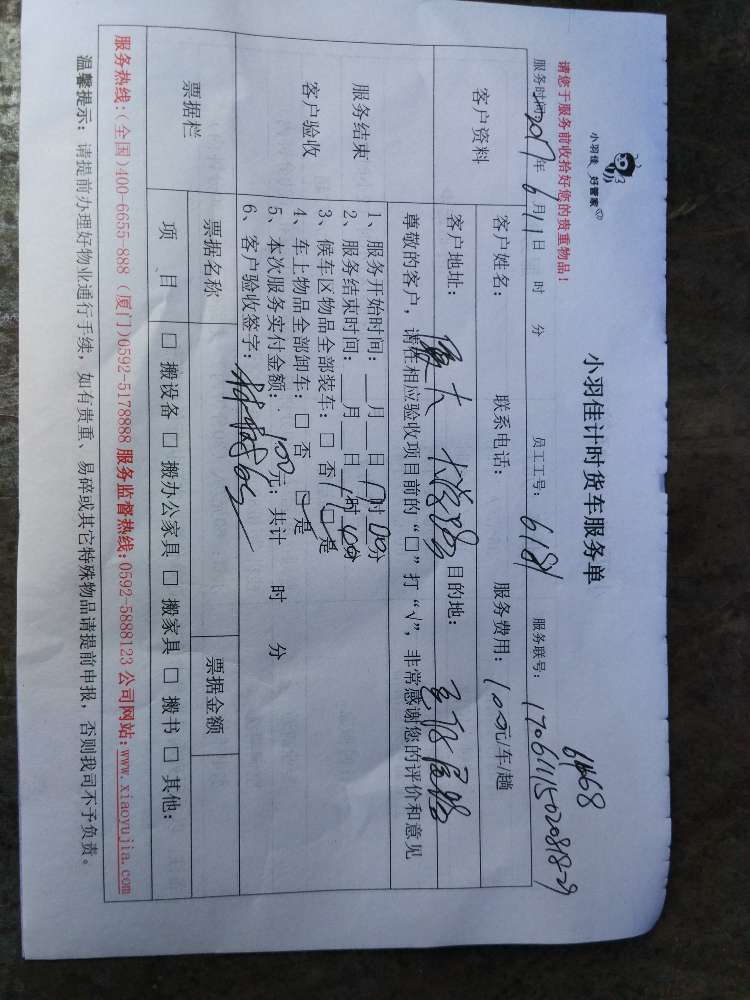 小羽佳 好管家
小羽佳计时货车服务单
请您于服务前收拾好您的贵重物品！
61468
服务时间：2017年6月11日 时 分 员工工号：6181 服务联号：17061115020818-29
客户资料
客户姓名： 联系电话： 服务费用：100元/车/趟
客户地址：厦大 目的地：
尊敬的客户，请在相应验收项目前的“□”打“√”，非常感谢您的评价和意见
服务结束
客户验收
1、服务开始时间：__月__日17时00分
2、服务结束时间：__月__日 时 分
3、候车区物品全部装车：□ 否 □ 是
4、车上物品全部卸车：□ 否 □ 是
5、本次服务实付金额：100元；共计 时 分
6、客户验收签字：
票据栏
票据名称 票据金额
项 目 □ 搬设备 □ 搬办公家具 □ 搬家具 □ 搬书 □ 其他：
服务热线：(全国)400-6655-888 (厦门)0592-5178888 服务监督热线：0592-5888123 公司网站：www.xiaoyujia.com
温馨提示：请提前办理好物业通行手续，如有贵重、易碎或其它特殊物品请提前申报，否则我司不予负责。